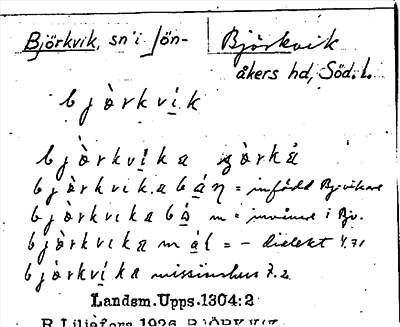 Björkvik, sn i Jön- Björkvik
åkers hd, Söd. l.
bjòrkvík
bjòrkvika
bjòrkvikabáη = infödd Björvikare
bjòrkvikabó m = invånare i Bjv.
bjòrkvika mál = - dialekt
bjòrkvíka missionshus 7.2
Landsm. Upps. 1304:2
R. Liljefors 1926 BJÖRKVIK